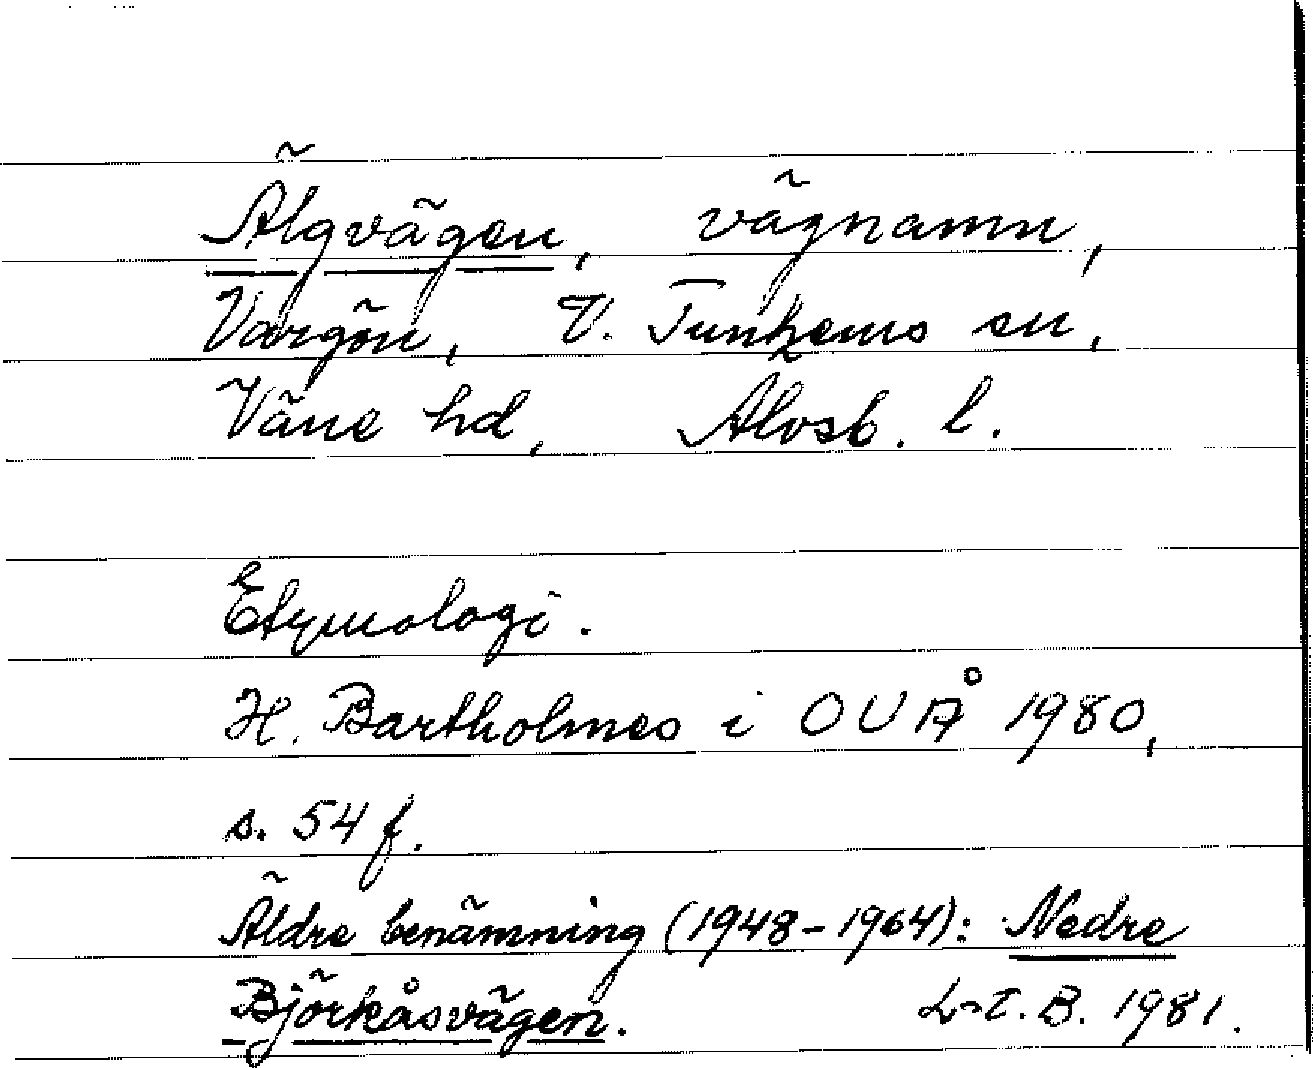 Älgvägen, vägnamn,
Vargön, V. Tunhems sn,
Väne hd, Älvsb. l.
Etymologi.
H. Bartholmes i OUÅ 1980,
s. 54 f.
Äldre benämning (1948-1964): Nedre
Björkåsvägen. L-T. B. 1981.